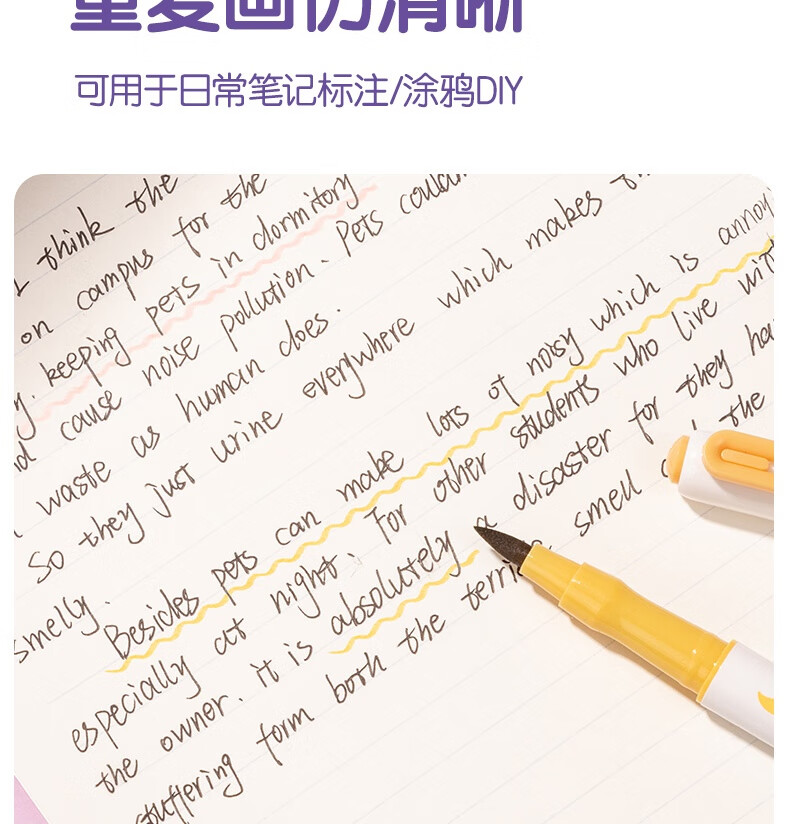 重复画仍清晰
可用于日常笔记标注/涂鸦DIY
I think the
on campus for the
y. keeping pets in dormitory
nd cause noise pollution. Pets couldn
waste as human does.
So they just urine everywhere which makes th
smelly.
Besides pets can make lots of noisy which is annoy
especially at night. For other students who live with
the owner. it is absolutely a disaster for they ha
stuffering form both the terri smell the